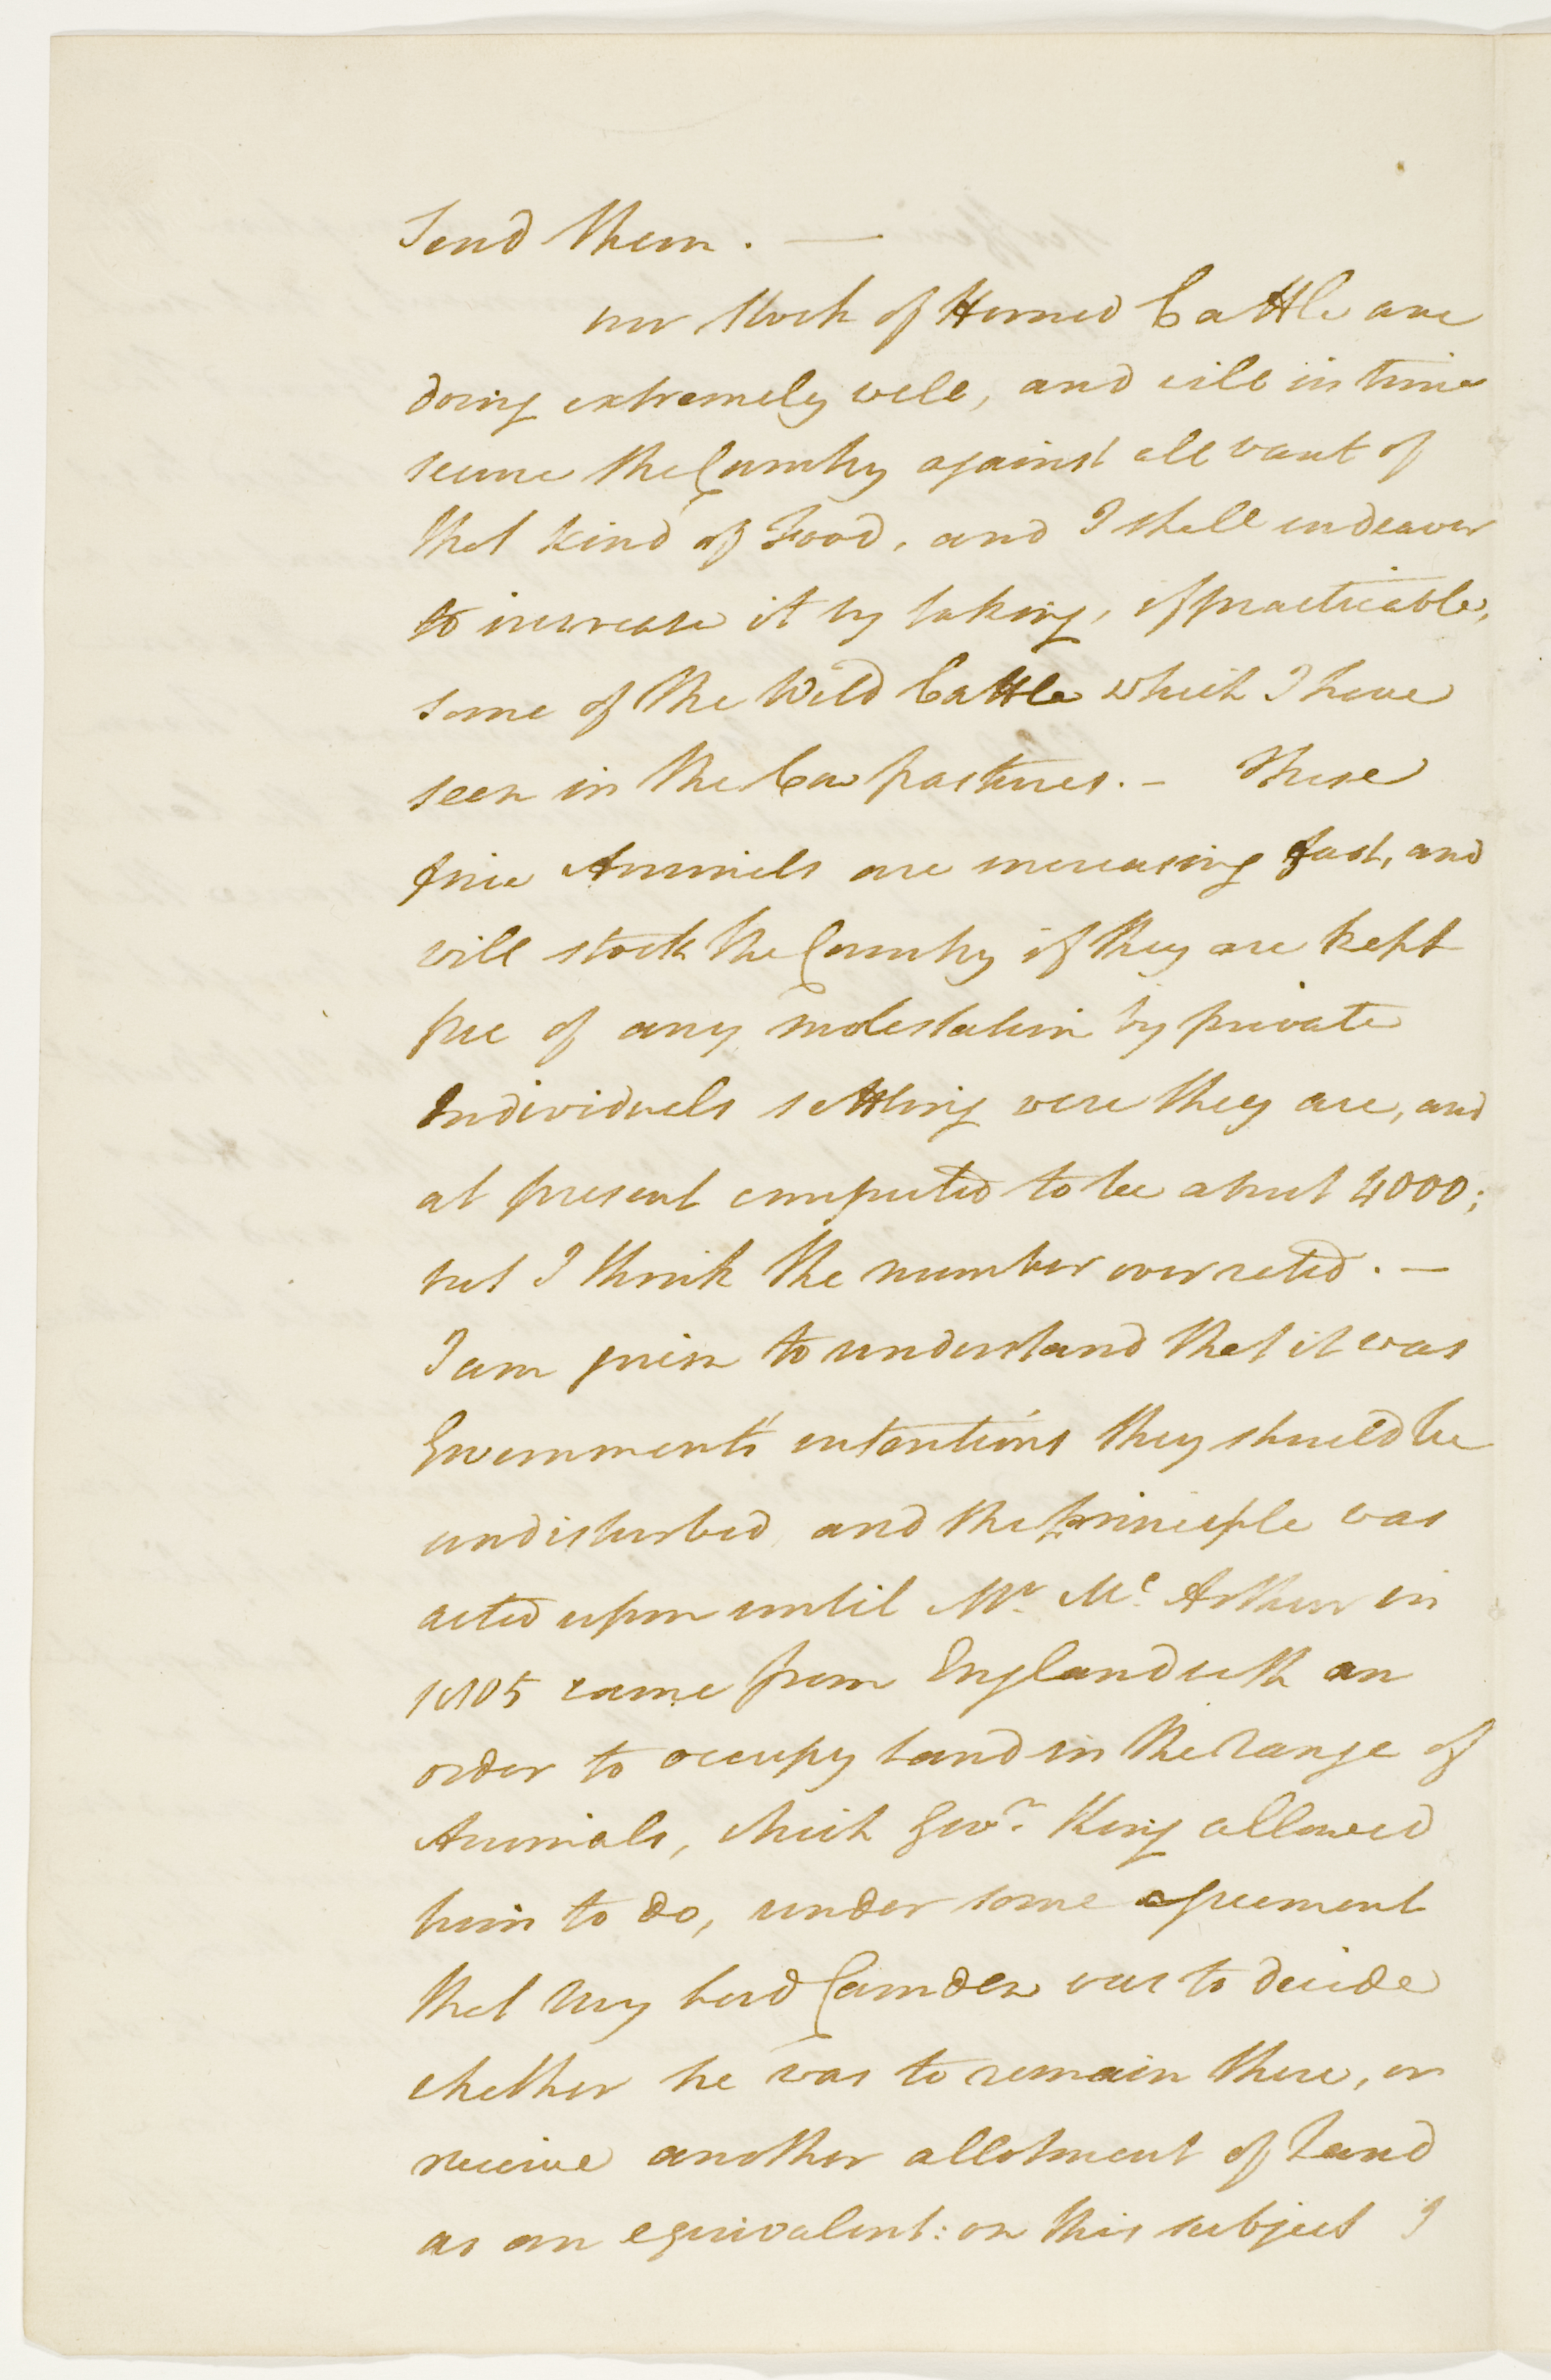 Send them. —
our stock of Horned Cattle are
doing extremely well, and will in time
secure the Country against all want of
that kind of Food, and I shall endeavor
to increase it by taking, if practicable,
some of the Wild Cattle which I have
seen in the Cow pastures. — These
fine Animals are increasing fast, and
will stock the Country if they are kept
free of any molestation by private
Individuals settling were they are, and
at present computed to be about 4000;
but I think the number overrated. —
I am given to understand that it was
Government's intentions they should be
undisturbed and the principle was
acted upon until Mr. Mc. Arthur in
1805 came from England with an
order to occupy land in the range of
Animals, which Govr. King allowed
him to do, under some agreement
that My Lord Camden was to decide
whether he was to remain there, or
receive another allotment of Land
as an equivalent: on this subject I